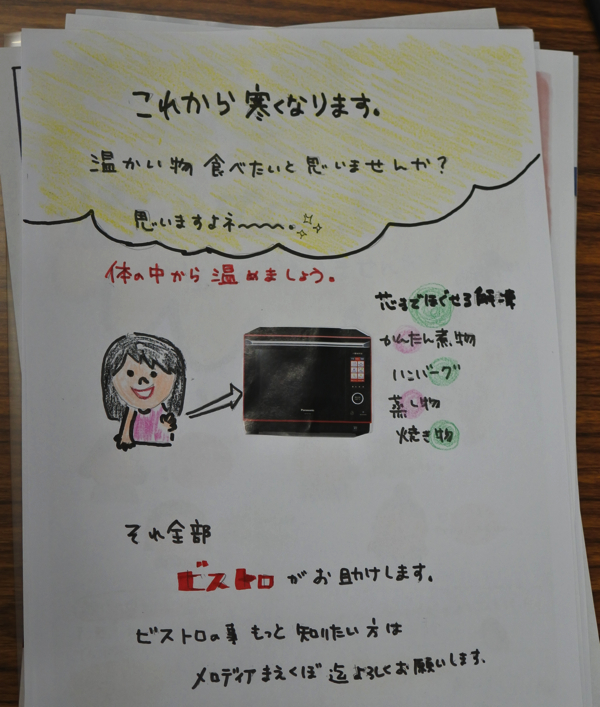 これから寒くなります。
温かい物 食べたいと思いませんか?
思いますよネ〜〜〜。
体の中から温めましょう。
芯までほぐせる解凍
かんたん煮物
ハンバーグ
蒸し物
焼き物
Panasonic
それ全部
ビストロがお助けします。
ビストロの事 もっと知りたい方は
メロディアまえくぼ迄よろしくお願いします。